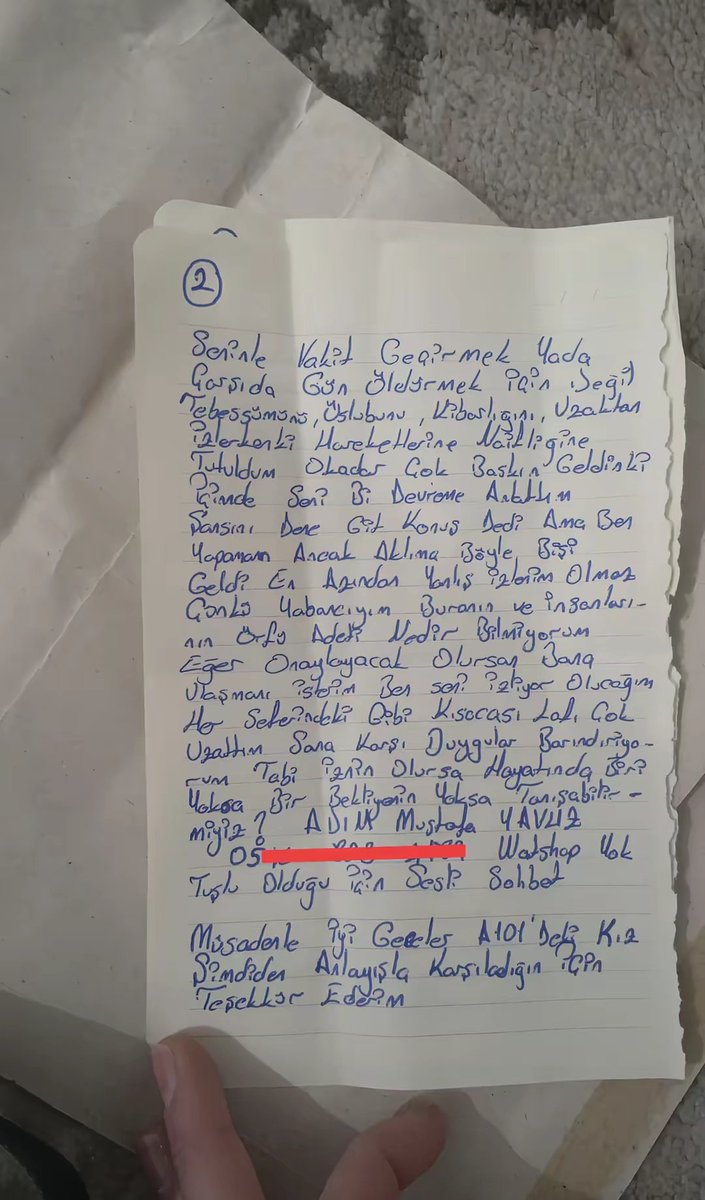 2
Seninle Vakit Geçirmek Yada
Çarşıda Gün Öldürmek için Değil
Tebessümünü, Üslubunu, Kibarlığını, Uzaktan
izlerkenki Hareketlerine Naikliğine
Tutuldum Okadar Çok Baskın Geldinki
içimde Seni Bi Devreme Anlattım
Şansını Dene Git Konuş Dedi Ama Ben
Yapamam Ancak Aklıma Böyle Bişi
Geldi En Azından Yanlış izlenim Olmaz
Çünkü Yabancıyım Buranın ve insanları-
nın Örfü Adeti Nedir Bilmiyorum
Eğer Onaylayacak Olursan Bana
Ulaşmanı isterim Ben seni izliyor Olucağım
Her Seferindeki Gibi Kısocası Lafı Çok
Uzattım Sana Karşı Duygular Barındırıyo-
rum Tabi izniñ Olursa Hayatında Biri
Yoksa Bir Bekliyenin Yoksa Tanışabilir-
miyiz? ADIM Mustafa YAVUZ
05 Watshap Yok
Tuşlu Olduğu için Sesli Sohbet
Müsadenle iyi Geceler A101'Deki Kız
Şimdiden Anlayışla Karşıladığın için
Teşekkür Ederim